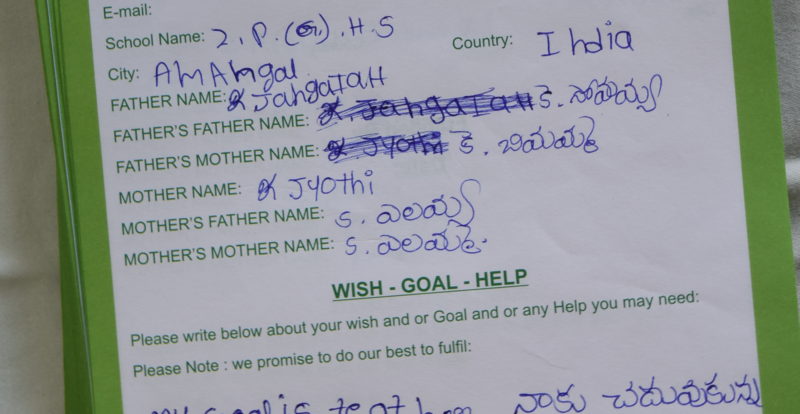 E-mail:
School Name: Z.P.(G).H.S Country: India
City: AmAngal
FATHER NAME: K Jangaiah
FATHER'S FATHER NAME: కె. సోమయ్య
FATHER'S MOTHER NAME: కె.
MOTHER NAME: K Jyothi
MOTHER'S FATHER NAME: S.
MOTHER'S MOTHER NAME: S.
WISH - GOAL - HELP
Please write below about your wish and or Goal and or any Help you may need:
Please Note : we promise to do our best to fulfil:
my goal is నాకు చదువుకున్న